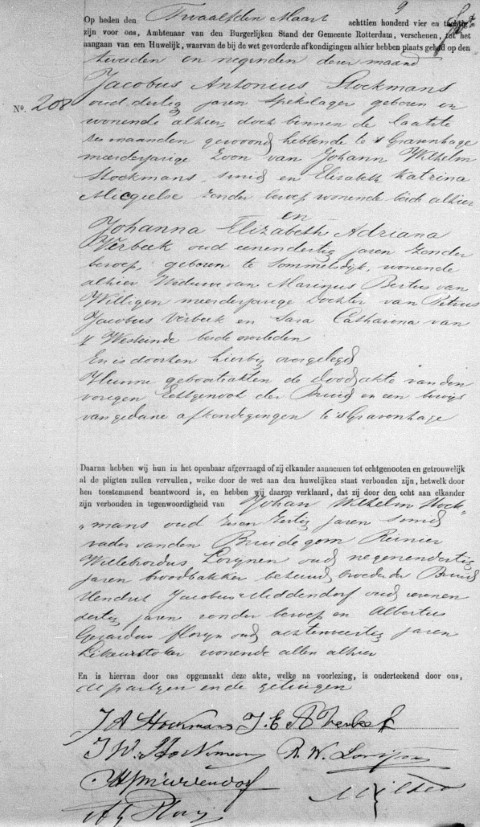 Op heden den Twaalfden Maart achttien honderd vier en tachtig
zijn voor ons, Ambtenaar van den Burgerlijken Stand der Gemeente Rotterdam, verschenen, tot het
aangaan van een Huwelijk, waarvan de bij de wet gevorderde afkondigingen alhier hebben plaats gehad op den
tweeden en negenden dezer maand
No. 208
Jacobus Antonius Stockmans
oud dertig jaren spekslager geboren en
wonende alhier doch binnen de laatste
zes maanden gewoond hebbende te 's Gravenhage
meerderjarige zoon van Johann Wilhelm
Stockmans smid en Elisabeth Katrina
zonder beroep wonende beide alhier
en
Johanna Elizabeth Adriana
Verbeek oud eenendertig jaren zonder
beroep, geboren te Sommelsdijk, wonende
alhier Weduwe van Marinus Bertus van
Willigen meerderjarige dochter van Petrus
Jacobus Verbeek en Sara Catharina van
't Westeinde beide overleden
En is door hen hierbij overgelegd
Hunne geboorteakten de doodakte van den
vorigen Echtgenoot der Bruid en een bewijs
van gedane afkondigingen te 's Gravenhage
Daarna hebben wij hun in het openbaar afgevraagd of zij elkander aannemen tot echtgenooten en getrouwelijk
al de pligten zullen vervullen, welke door de wet aan den huwelijken staat verbonden zijn, hetwelk door
hen toestemmend beantwoord is, en hebben wij daarop verklaard, dat zij door den echt aan elkander
zijn verbonden in tegenwoordigheid van Johan Wilhelm Stock
mans oud jaren smid
vader van den Bruidegom Reinier
Willebrordus Lorijnen oud negenendertig
jaren broodbakker behuwd broeder der Bruid
Hendrik Jacobus Middendorf oud eenen
dertig jaren zonder beroep en Albertus
Gerardus Florijn oud achtenveertig jaren
Likeurstoker wonende allen alhier
En is hiervan door ons opgemaakt deze akte, welke na voorlezing, is onderteekend door ons,
de partijen en de getuigen
J A Stockmans J. E A Verbeek
J W. Stockmans R. W. Lorijnen
HJMiddendorf
A G Florijn